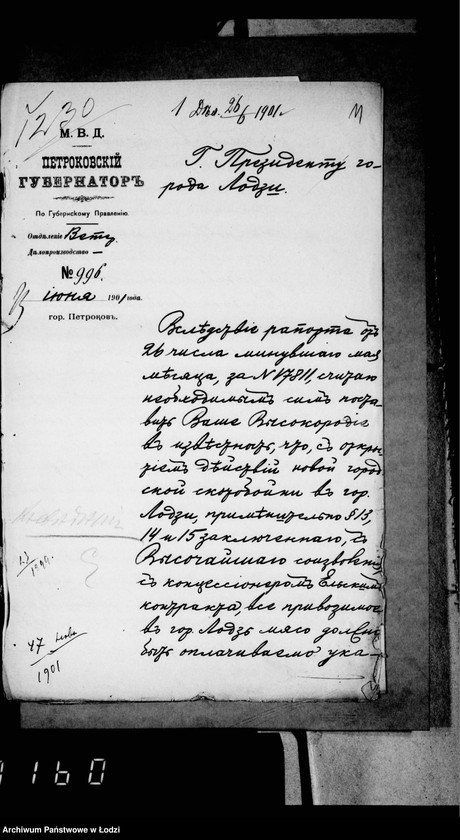 1230
1 Дѣл. 26/6 1901 г.
11
М. В. Д.
ПЕТРОКОВСКІЙ
ГУБЕРНАТОРЪ
По Губернскому Правленію.
Отдѣленіе Вет.
Дѣлопроизводство —
№ 996.
іюня 1901 года.
гор. Петроковъ.
Г. Президенту го-
рода Лодзи.
Вслѣдствіе рапорта отъ
26 числа минувшаго мая
мѣсяца, за N 17811, считаю
необходимымъ симъ поста-
вить Ваше Высокородіе
въ извѣстность, что, съ откры-
тіемъ дѣйствій новой город-
ской скотобойни въ гор.
Лодзи, примѣнительно § 13,
14 и 15 заключеннаго, съ
Высочайшаго соизволенія,
съ концессіонеромъ Ельскимъ
контракта, все привозимое
въ гор. Лодзь мясо должно
быть оплачиваемо ука-
47
1901
1160
Archiwum Państwowe w Łodzi